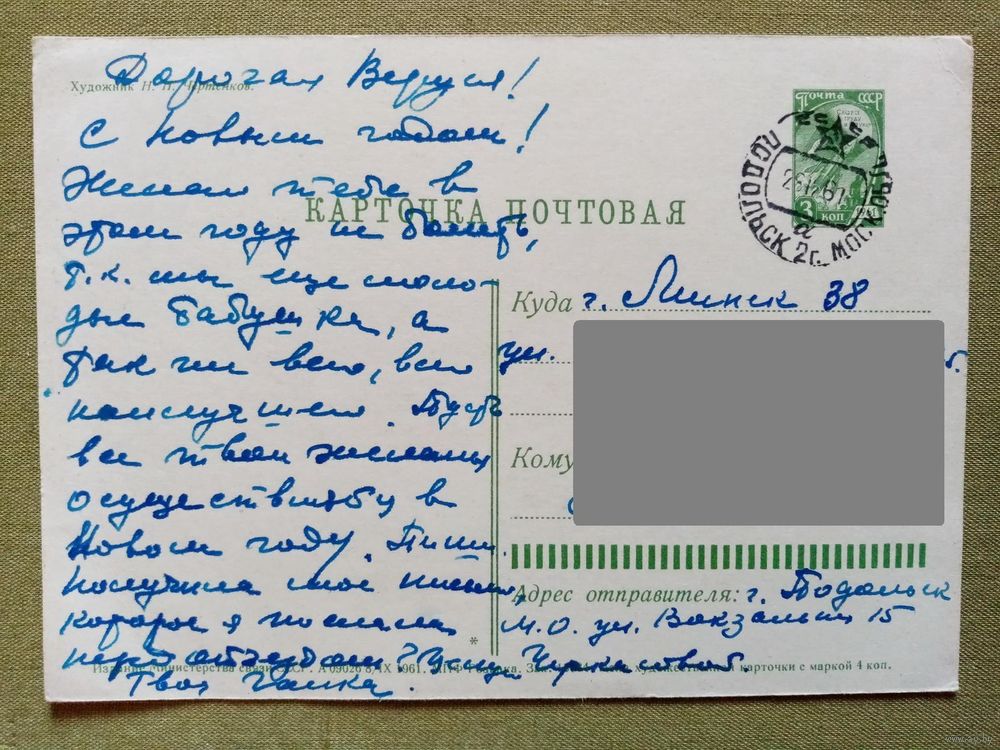 Художник Н. П. Чертенков.
Дорогая Веруся!
С новым годом!
Желаю тебе в
этом году не болеть,
т.к. мы еще моло-
дые бабушки, а
так же всего, всего
наилучшего. Пусть
все твои желания
осуществлятся в
Новом году. Пиши.
получила мое письмо,
которое я послала
Твоя Галка.
ПОЧТА СССР
3 КОП
ПОДОЛЬСК 2 г. МОСКОВ.
КАРТОЧКА ПОЧТОВАЯ
Куда г. Минск 38
ул.
Кому
Адрес отправителя: г. Подольск
М.О. ул. Вокзальная 15
Издание Министерства связи СССР. А 09026 IX 1961. художественной карточки с маркой 4 коп.